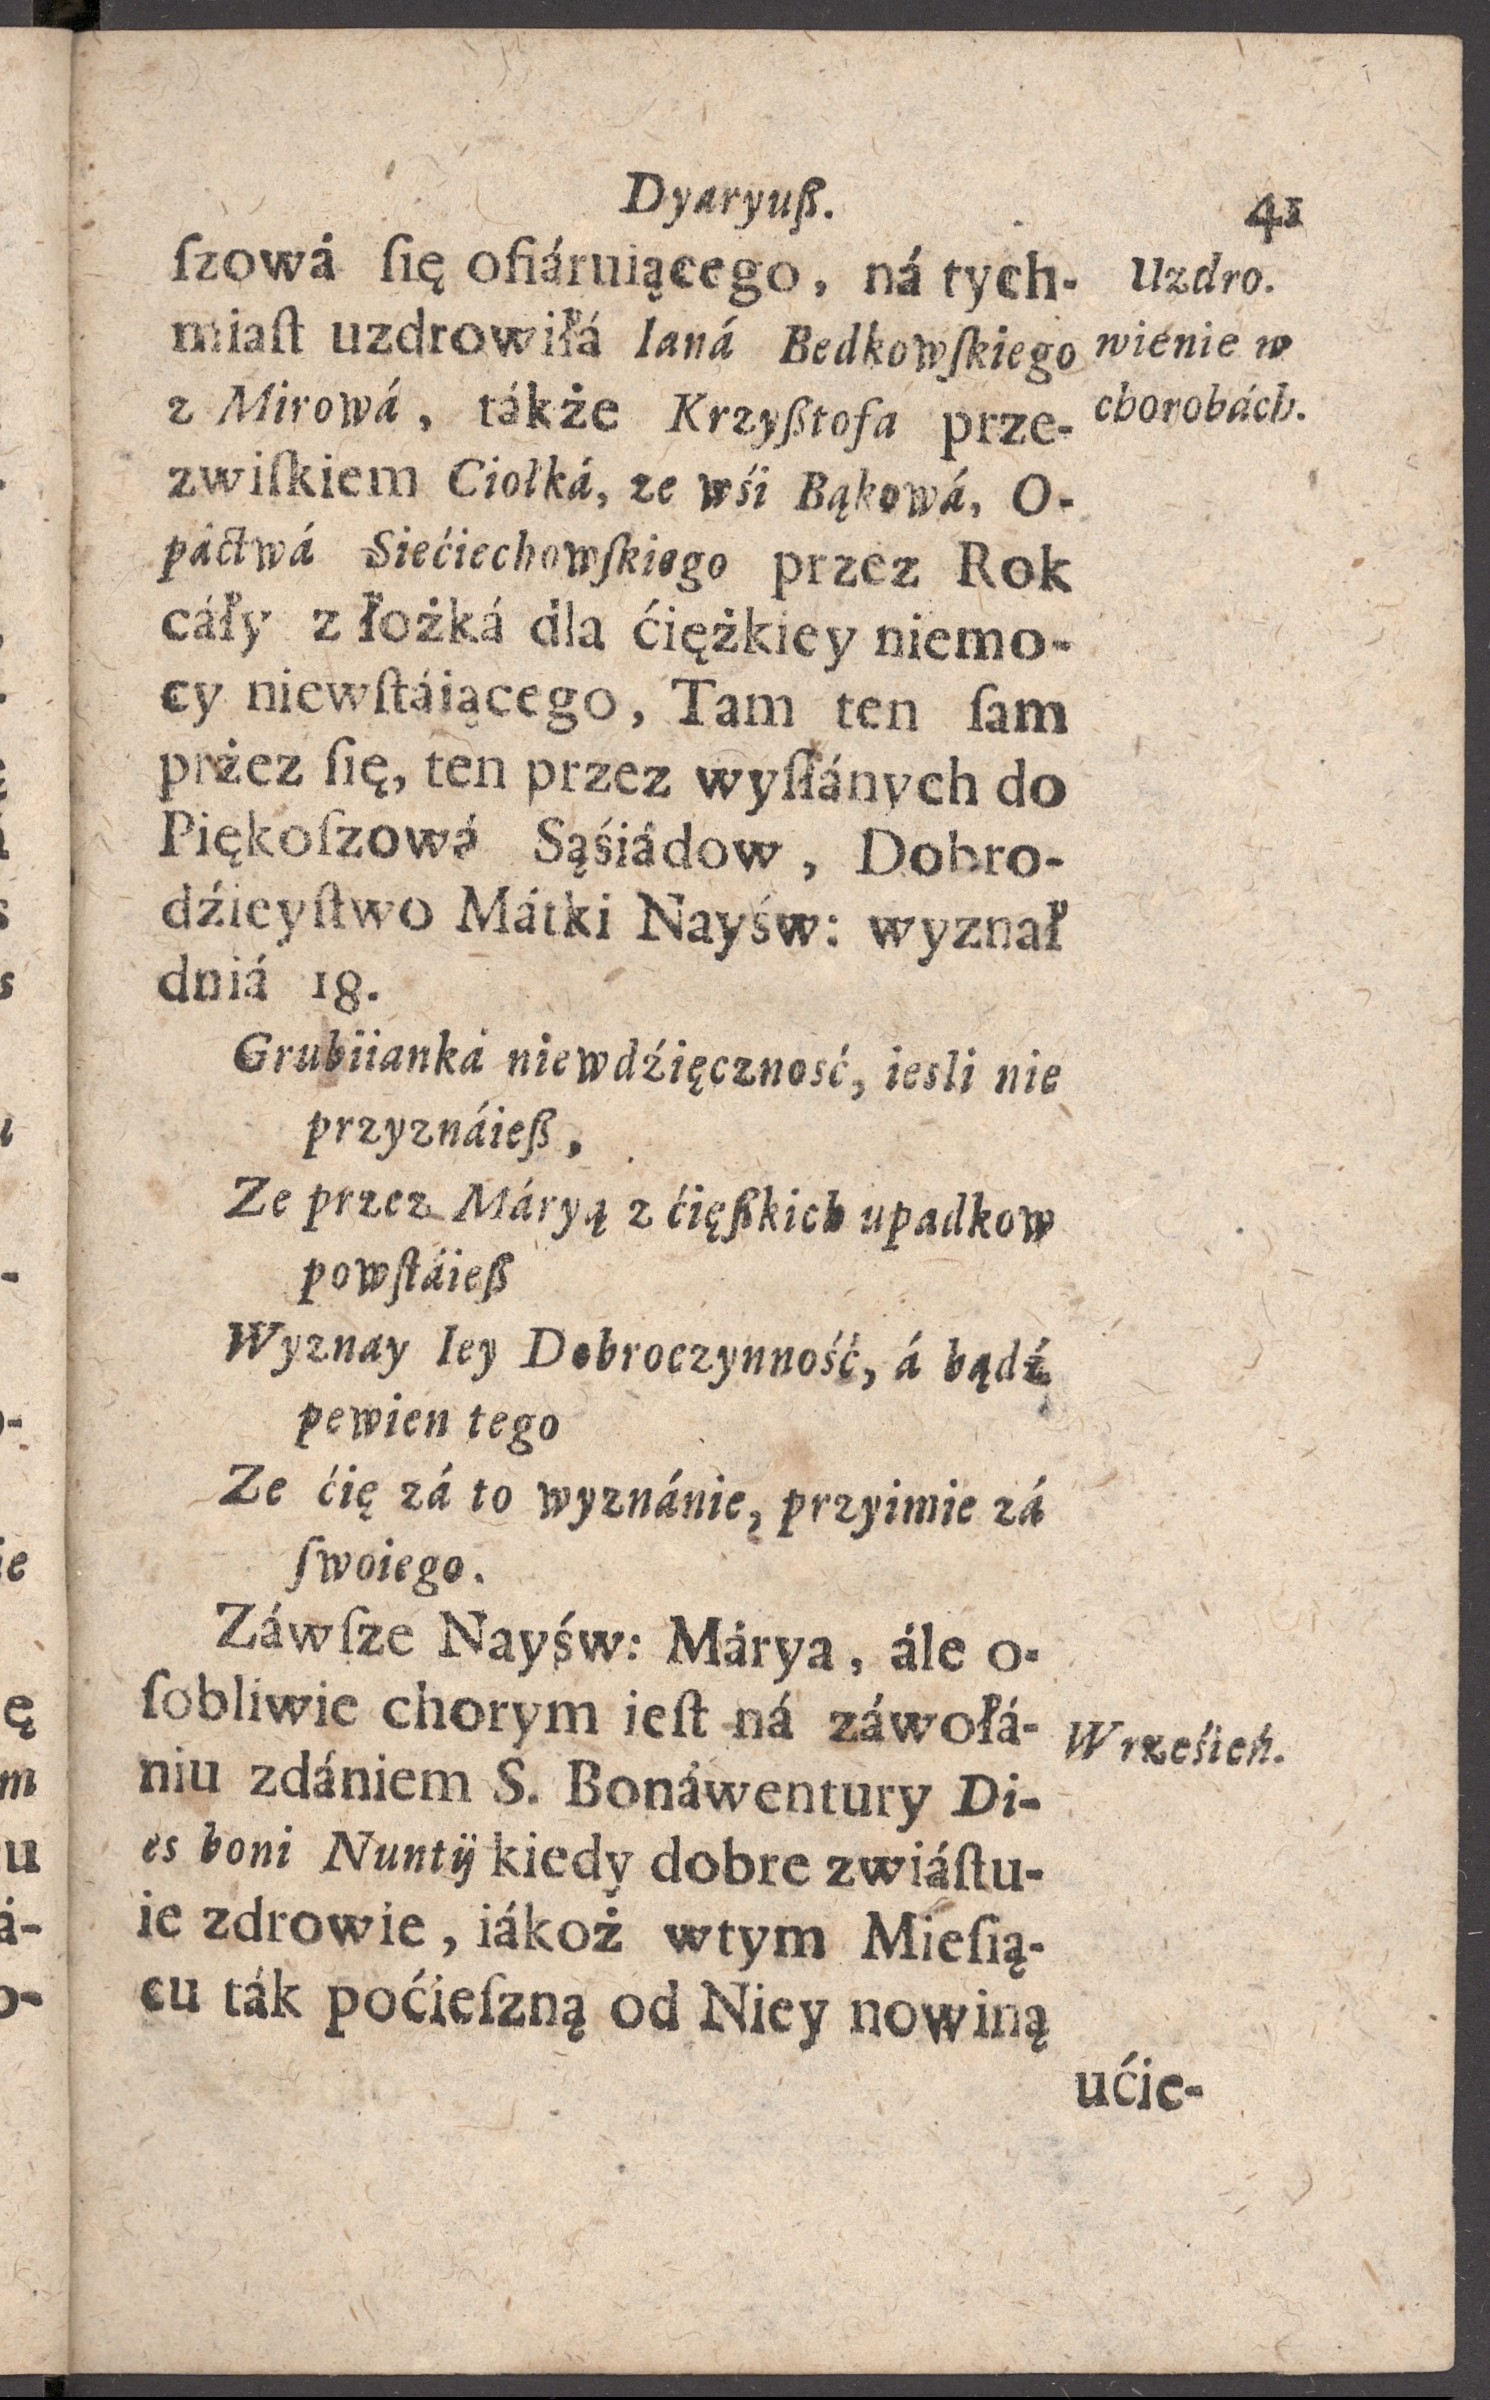 Dyaryuß.
41
ſzowá ſię ofiáruiącego, ná tych-
miaſt uzdrowiłá Ianá Bedkowſkiego
z Mirowá, tákże Krzyßtofa prze-
zwiſkiem Ciołká, ze wśi Bąkowá, O-
páctwá Siećiechowſkiego przez Rok
cáły z łożká dla ćiężkiey niemo-
cy niewſtáiącego, Tam ten ſam
przez ſię, ten przez wyſłánych do
Piękoſzowá Sąśiádow, Dobro-
dźieyſtwo Mátki Nayśw: wyznał
dniá 18.
Uzdro.
wienie w
chorobách.
Grubiianká niewdźięczność, iesli nie
przyznáieß,
Ze przez Máryą z ćięßkich upadkow
powſtáieß
Wyznay Iey Dobroczynność, á bądź
pewien tego
Ze ćię zá to wyznánie, przyimie zá
ſwoiego.
Záwſze Nayśw: Márya, ále o-
ſobliwie chorym ieſt ná záwołá-
niu zdániem S. Bonáwentury Di-
es boni Nuntij kiedy dobre zwiáſtu-
ie zdrowie, iákoż wtym Mieſią-
cu ták poćieſzną od Niey nowiną
Wrześień.
ućie-